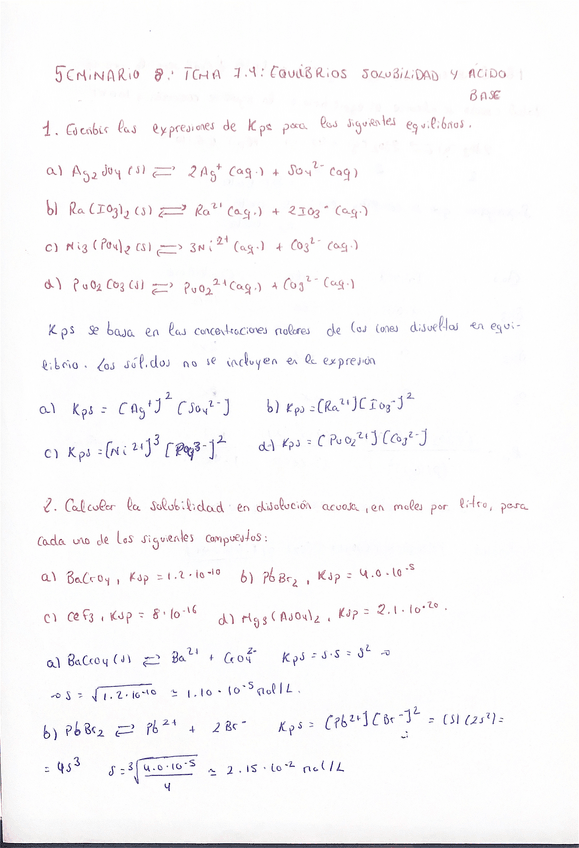 SEMINARIO 8: TEMA 7.4: EQUILIBRIOS SOLUBILIDAD Y ACIDO
BASE
1. Escribir las expresiones de Kps para los siguientes equilibrios.
a) Ag2SO4 (s) ⇌ 2Ag⁺ (aq.) + SO4²⁻ (aq)
b) Ra(IO3)2 (s) ⇌ Ra²⁺ (aq.) + 2IO3⁻ (aq.)
c) Ni3(PO4)2 (s) ⇌ 3Ni²⁺ (aq.) + CO3²⁻ (aq.)
d) PuO2CO3 (s) ⇌ PuO2²⁺ (aq.) + CO3²⁻ (aq.)
Kps se basa en las concentraciones molares de los iones disueltos en equi-
librio. Los sólidos no se incluyen en la expresión
a) Kps = [Ag⁺]² [SO4²⁻] b) Kps = [Ra²⁺][IO3⁻]²
c) Kps = [Ni²⁺]³ [PO4³⁻]² d) Kps = [PuO2²⁺][CO3²⁻]
2. Calcular la solubilidad en disolución acuosa, en moles por litro, para
cada uno de los siguientes compuestos:
a) BaCrO4, Ksp = 1.2·10⁻¹⁰ b) PbBr2, Ksp = 4.0·10⁻⁵
c) CeF3, Ksp = 8·10⁻¹⁶ d) Mg3(AsO4)2, Ksp = 2.1·10⁻²⁰.
a) BaCrO4 (s) ⇌ Ba²⁺ + CrO4²⁻ Kps = s·s = s² →
→ s = √1.2·10⁻¹⁰ ≃ 1.10·10⁻⁵ mol/L.
b) PbBr2 ⇌ Pb²⁺ + 2Br⁻ Kps = [Pb²⁺][Br⁻]² = (s)(2s²) =
= 4s³ s = ∛(4.0·10⁻⁵/4) ≃ 2.15·10⁻² mol/L